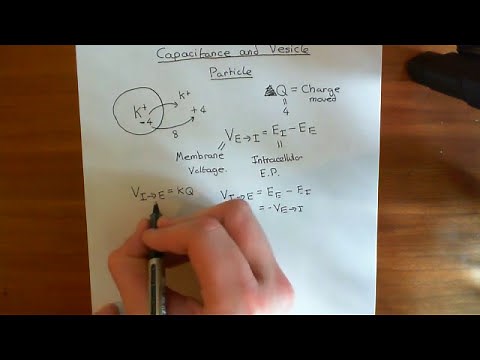 Capacitance and Vesicle
Particle
K+
K+
-4
+4
8
▲Q = Charge moved
=
4
V_E→I = E_I - E_E
Membrane Voltage.
Intracellular E.P.
V_I→E = KQ
V_I→E = E_E - E_I
= -V_E→I